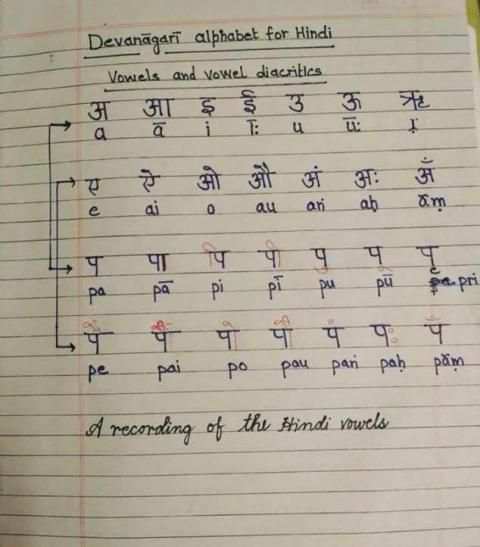 Devanāgarī alphabet for Hindi
Vowels and vowel diacritics
अ आ इ ई उ ऊ ऋ
a ā i ī: u ū: ṛ
ए ऐ ओ औ अं अः अँ
e ai o au aṅ aḥ ām̐
प पा पि पी पु पू पृ
pa pā pi pī pu pū pri
पे पै पो पौ पं पः पँ
pe pai po pau paṅ paḥ pāṃ
A recording of the Hindi vowels